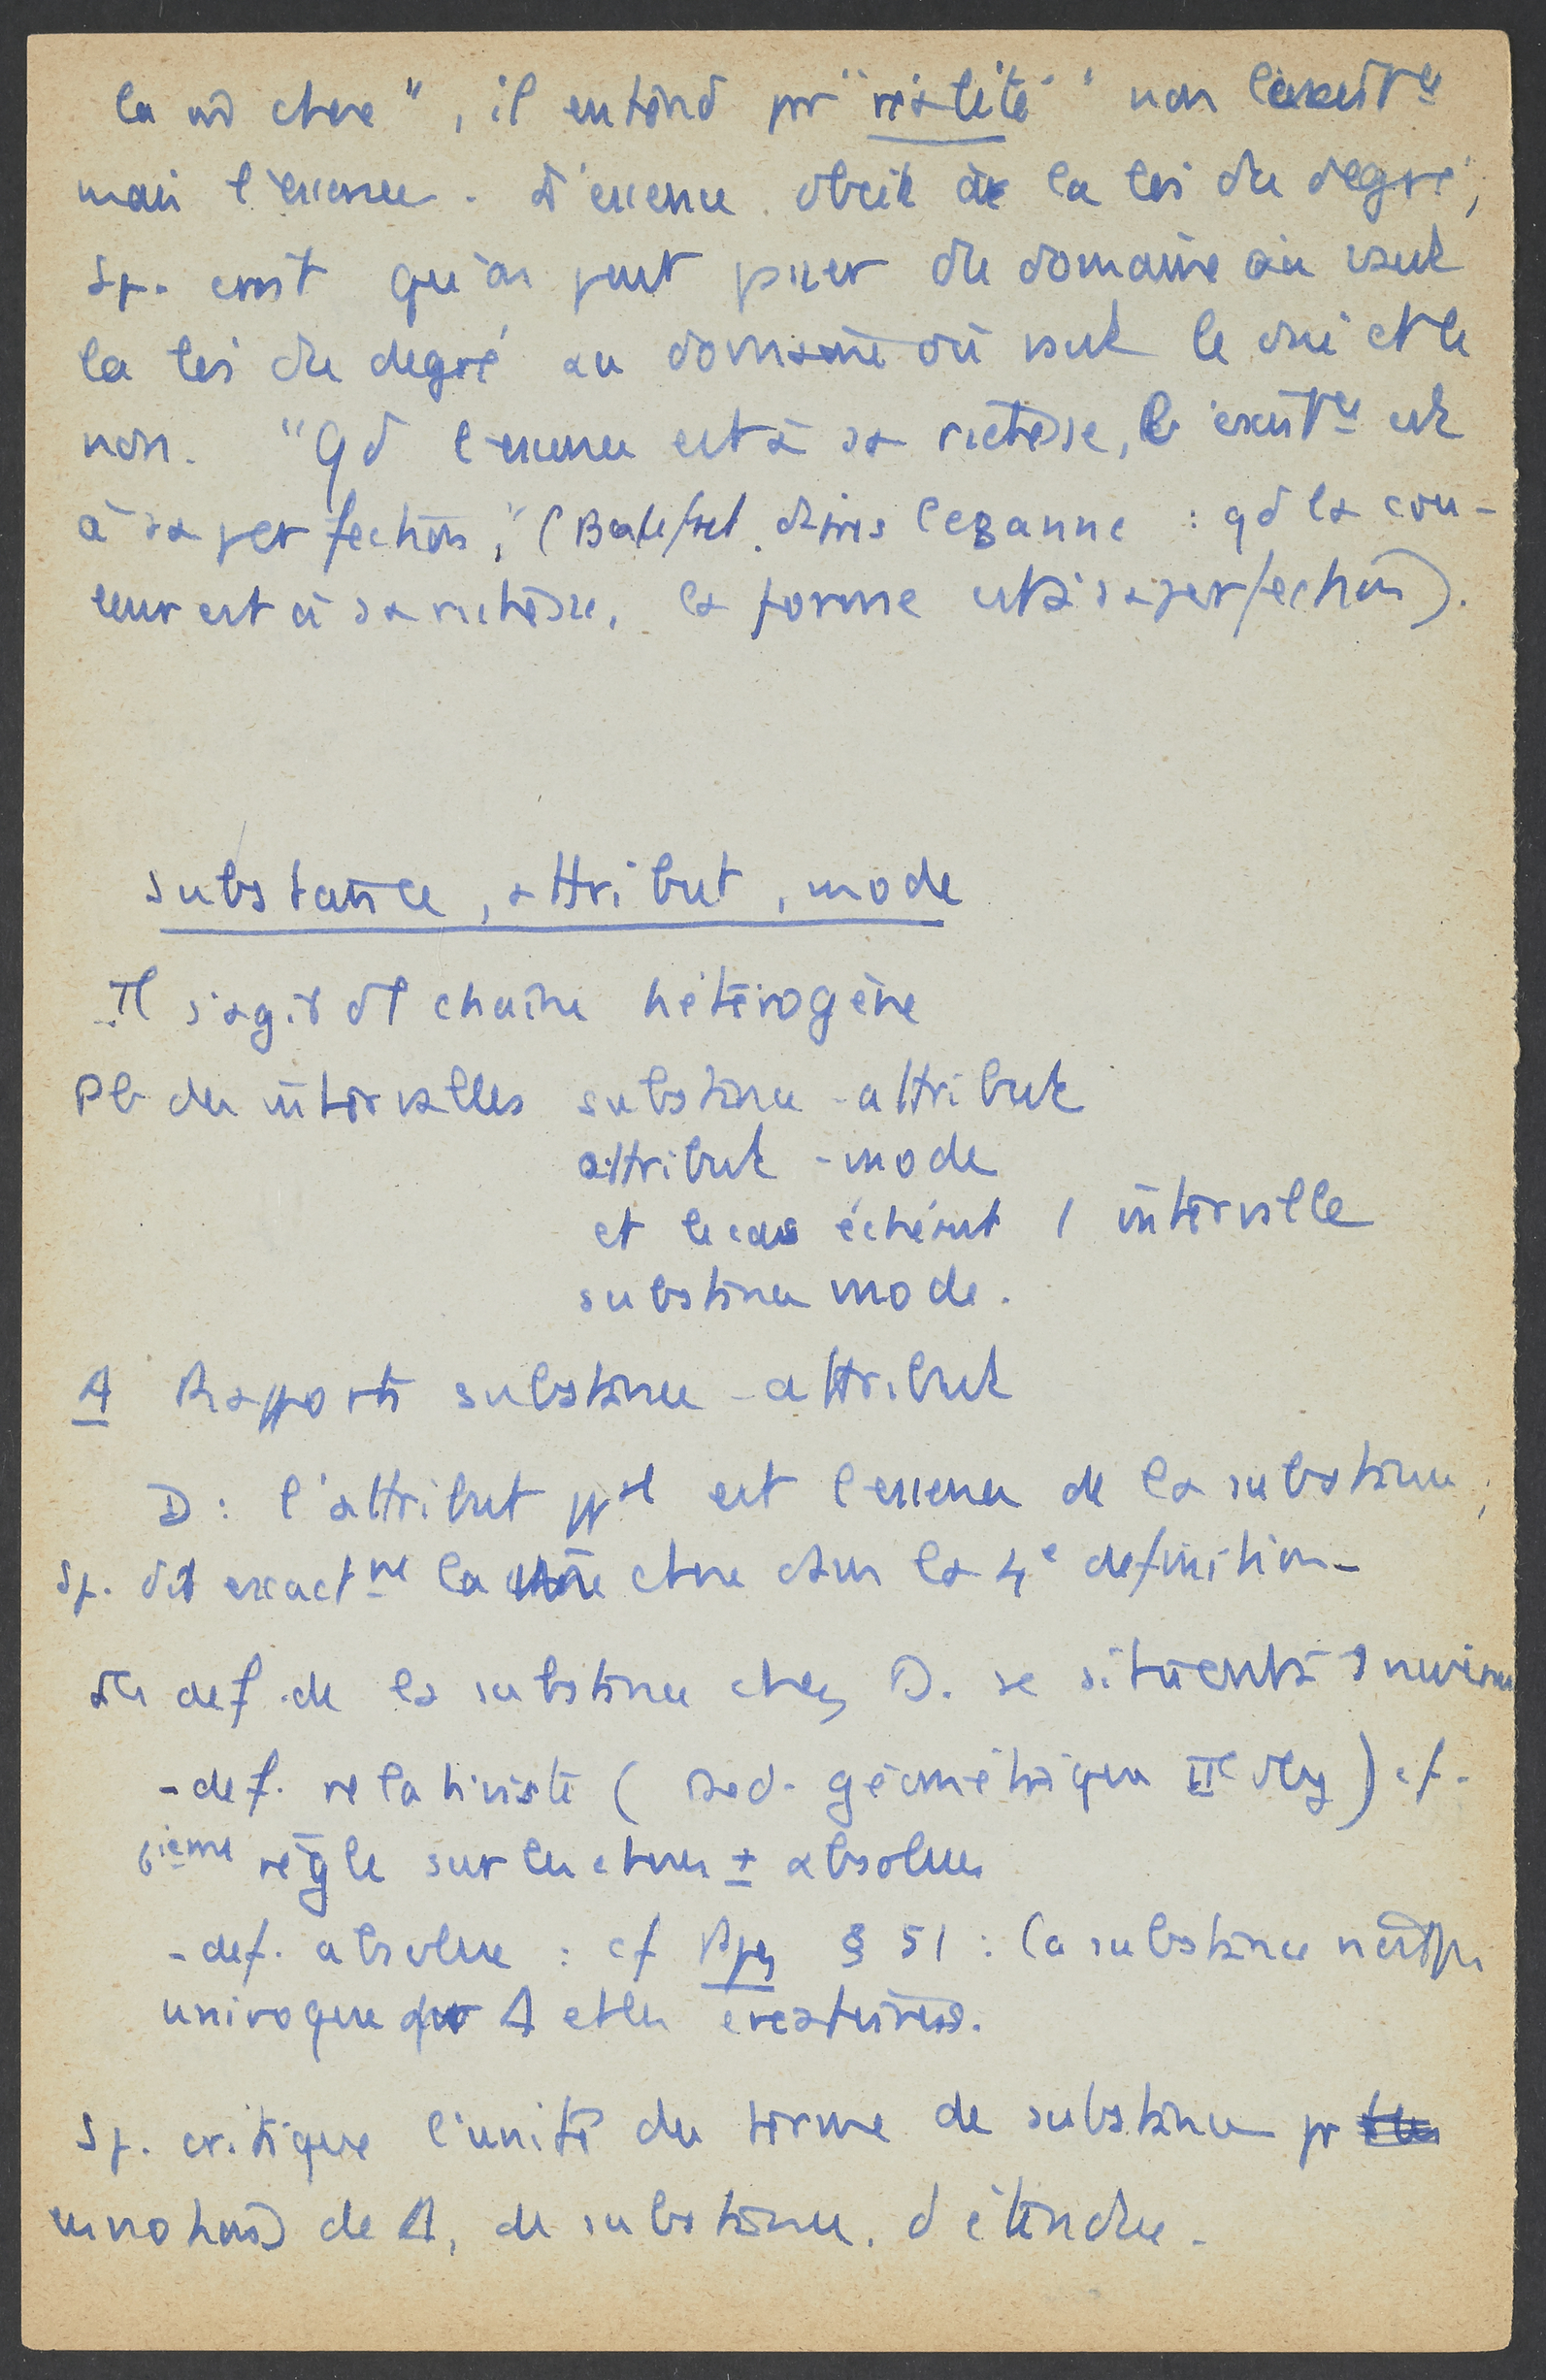 la m̂ chose", il entend pr "réalité" non l'existce
mais l'essence. L'essence obéit à la loi du degré,
Sp. croit qu'on peut passer du domaine où vaut
la loi du degré au domaine où vaut le oui et le
non. "Qd l'essence est à sa richesse, l'existce est
à sa perfection," ( : qd la cou-
leur est à sa richesse, la forme est à sa perfection).
substance, attribut, mode
Il s'agit d'1 chaîne hétérogène
Pb des intervalles substance - attribut
attribut - mode
et le cas échéant 1 intervalle
substance mode.
A Rapports substance - attribut
D : l'attribut ppal est l'essence de la substance ;
Sp. dit exactmt la même chose dans la 4e définition -
Les def. de la substance chez D. se situent à 2 niveaux
- def. relativiste ( géométrique IIe ) cf.
6ième règle sur les choses ± absolues
- def. absolue : cf Ppes § 51 : la substance n'est pas
univoque pr Δ et les créatures.
Sp. critique l'unité du terme de substance pr
les notions de Δ, de substance, d'étendue.